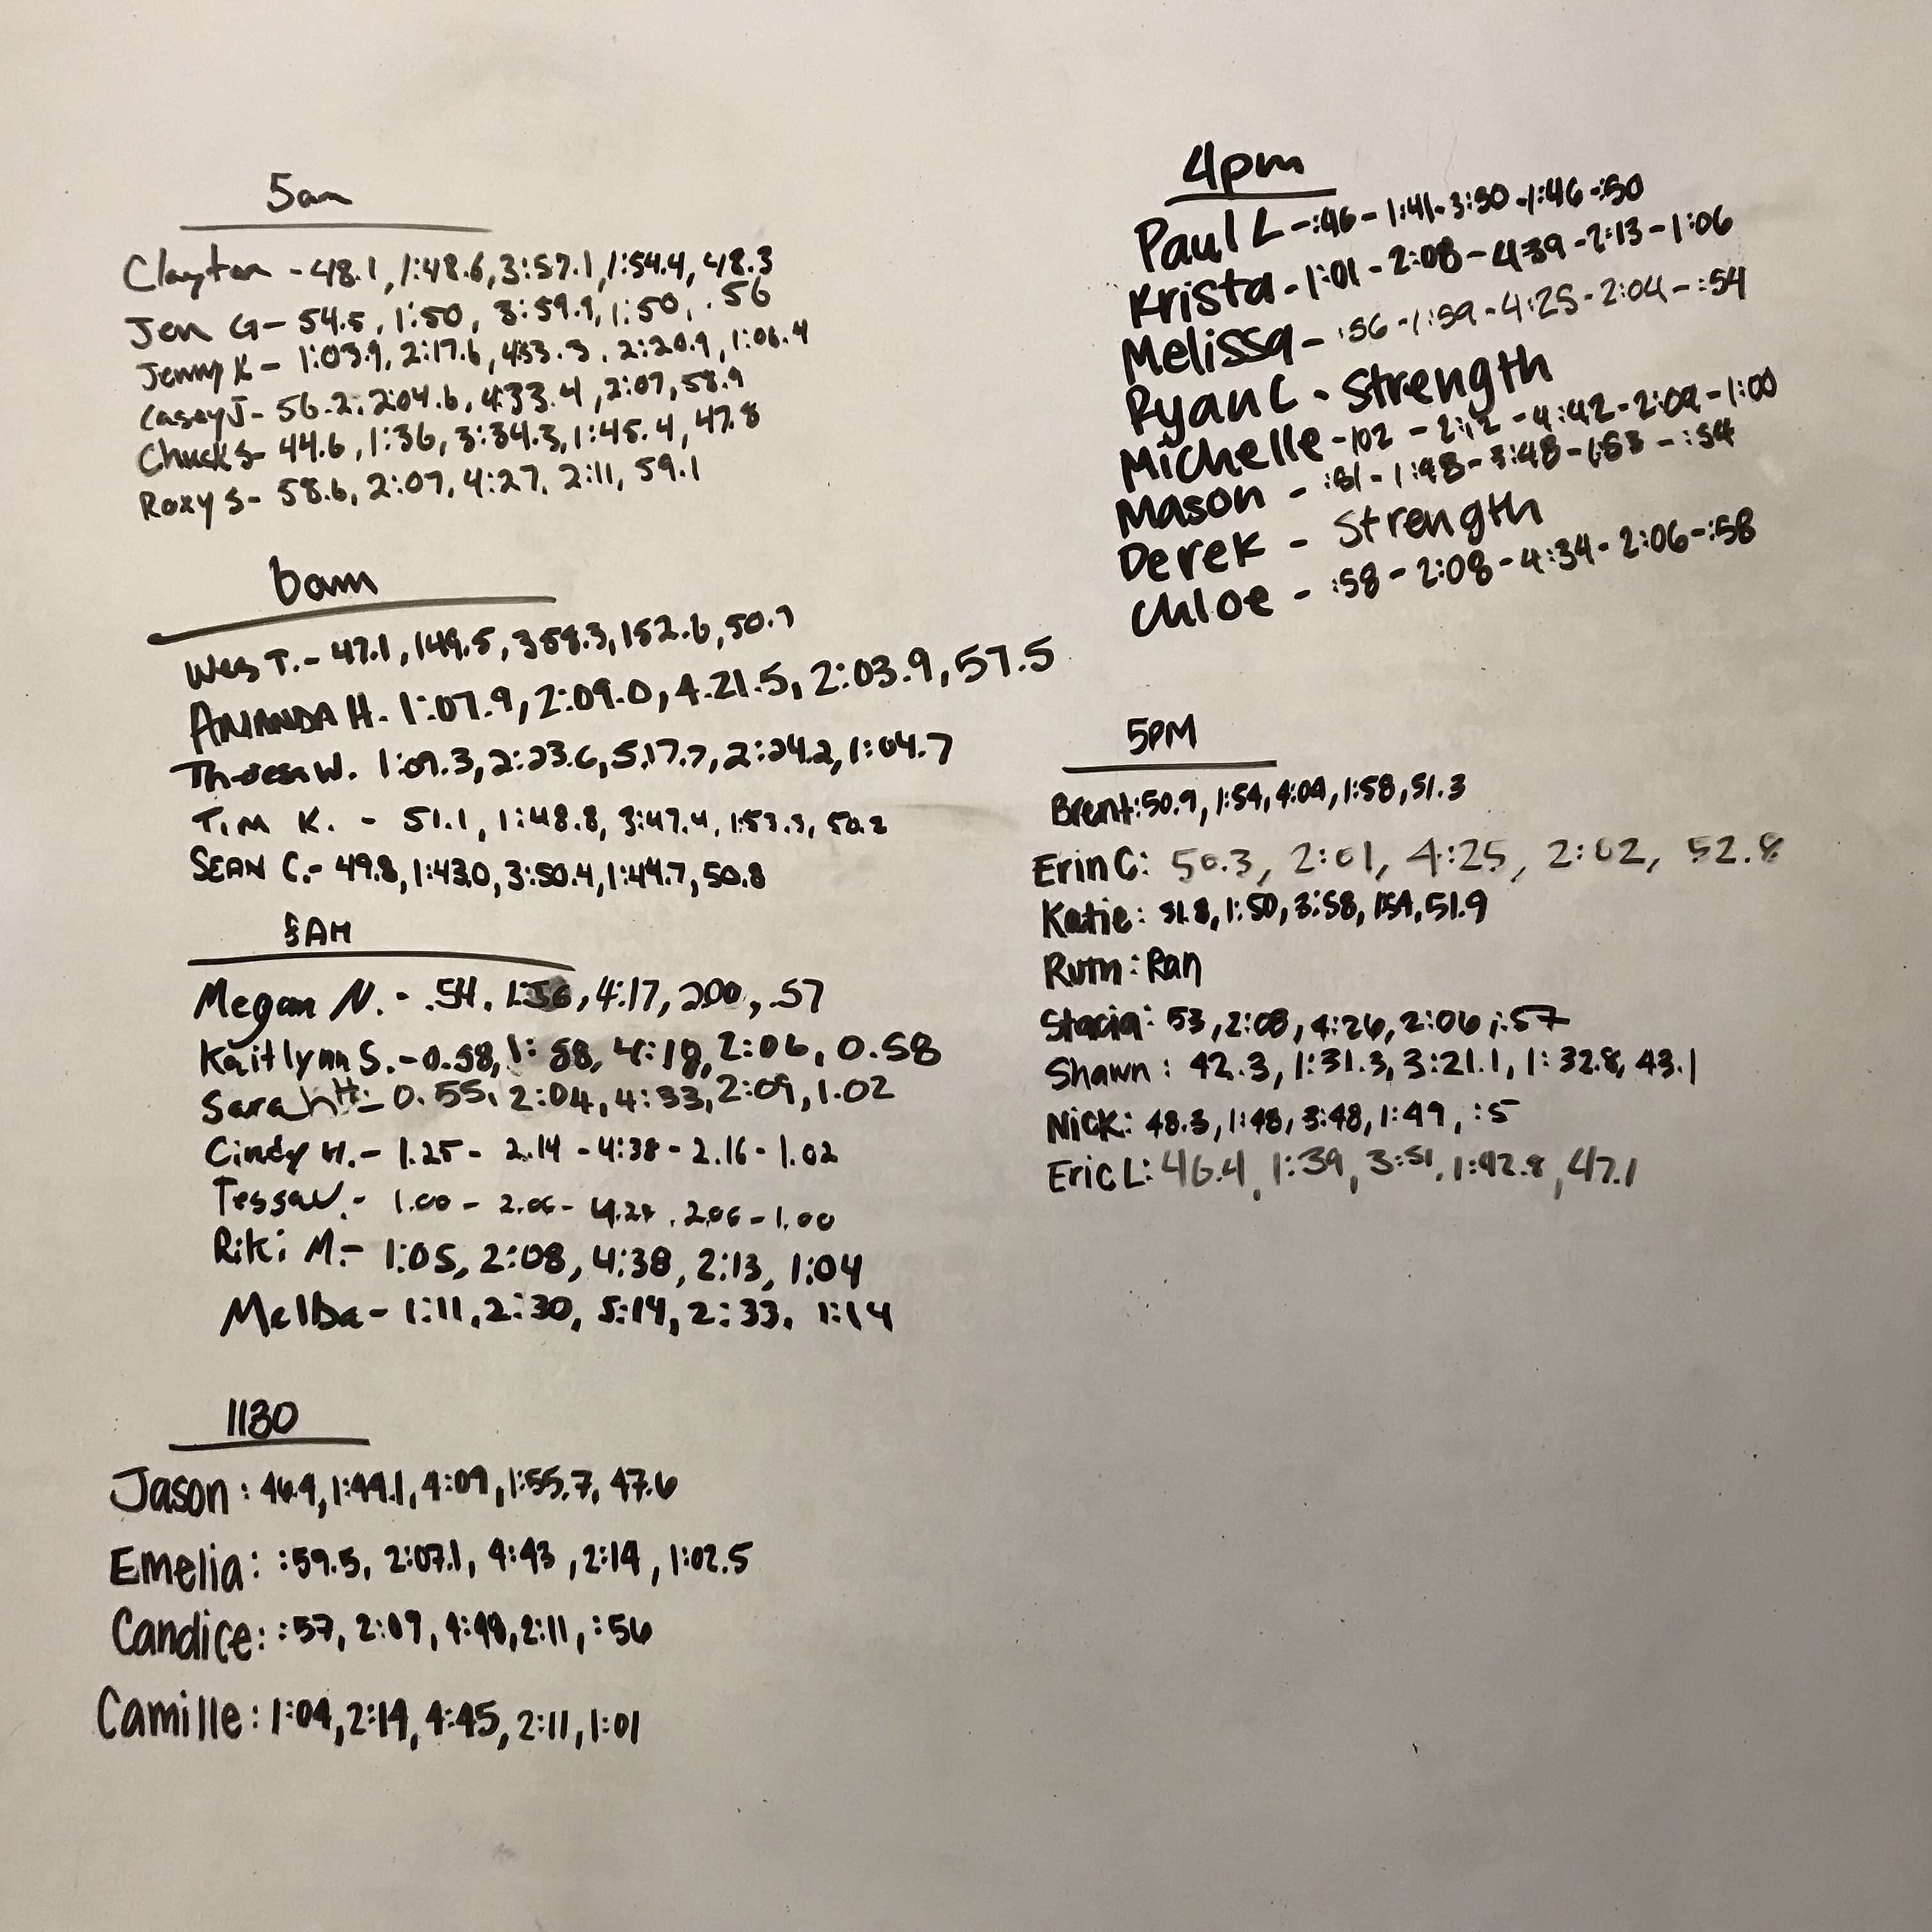 5am
Clayton - 48.1, 1:48.6, 3:57.1, 1:54.4, 48.3
Jen G - 54.5, 1:50, 3:59.9, 1:50, .56
Jenny K - 1:03.9, 2:17.6, 4:53.3, 2:20.9, 1:06.4
Casey J - 56.2, 2:04.6, 4:33.4, 2:07, 58.9
Chuck S - 44.6, 1:36, 3:34.3, 1:45.4, 47.8
Roxy S - 58.6, 2:07, 4:27, 2:11, 59.1
6am
Wes T. - 47.1, 149.5, 358.3, 152.6, 50.7
AMANDA H. 1:07.9, 2:09.0, 4.21.5, 2:03.9, 57.5
W. 1:09.3, 2:23.6, 5.17.7, 2:24.2, 1:04.7
TIM K. - 51.1, 1:48.8, 3:47.4, 1:53.3, 50.2
SEAN C. - 49.8, 1:43.0, 3:50.4, 1:44.7, 50.8
8AM
Megan N. - .54, 1:56, 4:17, 200, .57
Kaitlynn S. - 0.58, 1:58, 4:18, 2:06, 0.58
Sarah H - 0.55, 2:04, 4:33, 2:09, 1.02
Cindy H. - 1.25 - 2.14 - 4:38 - 2.16 - 1.02
Tessa V. - 1.00 - 2.06 - 4.27, 2.06 - 1.00
Riki M. - 1:05, 2:08, 4:38, 2:13, 1:04
Melba - 1:11, 2:30, 5:14, 2:33, 1:14
1130
Jason: 46.9, 1:49.1, 4:09, 1:55.7, 47.6
Emelia: :59.5, 2:07.1, 4:43, 2:14, 1:02.5
Candice: :57, 2:09, 4:40, 2:11, :56
Camille: 1:04, 2:14, 4:45, 2:11, 1:01
4pm
Paul L - :46 - 1:41 - 3:50 - 1:46 - :50
Krista - 1:01 - 2:08 - 4:39 - 2:13 - 1:06
Melissa - :56 - 1:59 - 4:25 - 2:04 - :54
Ryan C - Strength
Michelle - 102 - 2:12 - 4:42 - 2:09 - 1:00
Mason - :51 - 1:48 - 3:48 - 1:53 - :54
Derek - Strength
Chloe - :58 - 2:08 - 4:34 - 2:06 - :58
5PM
Brent: 50.9, 1:54, 4:04, 1:58, 51.3
Erin C: 50.3, 2:01, 4:25, 2:02, 52.8
Katie: 51.8, 1:50, 3:58, 1:54, 51.9
Ruth: Ran
Stacia: 53, 2:08, 4:26, 2:06, :57
Shawn: 42.3, 1:31.3, 3:21.1, 1:32.8, 43.1
Nick: 48.3, 1:48, 3:48, 1:49, :5
Eric L: 46.4, 1:39, 3:51, 1:42.8, 47.1